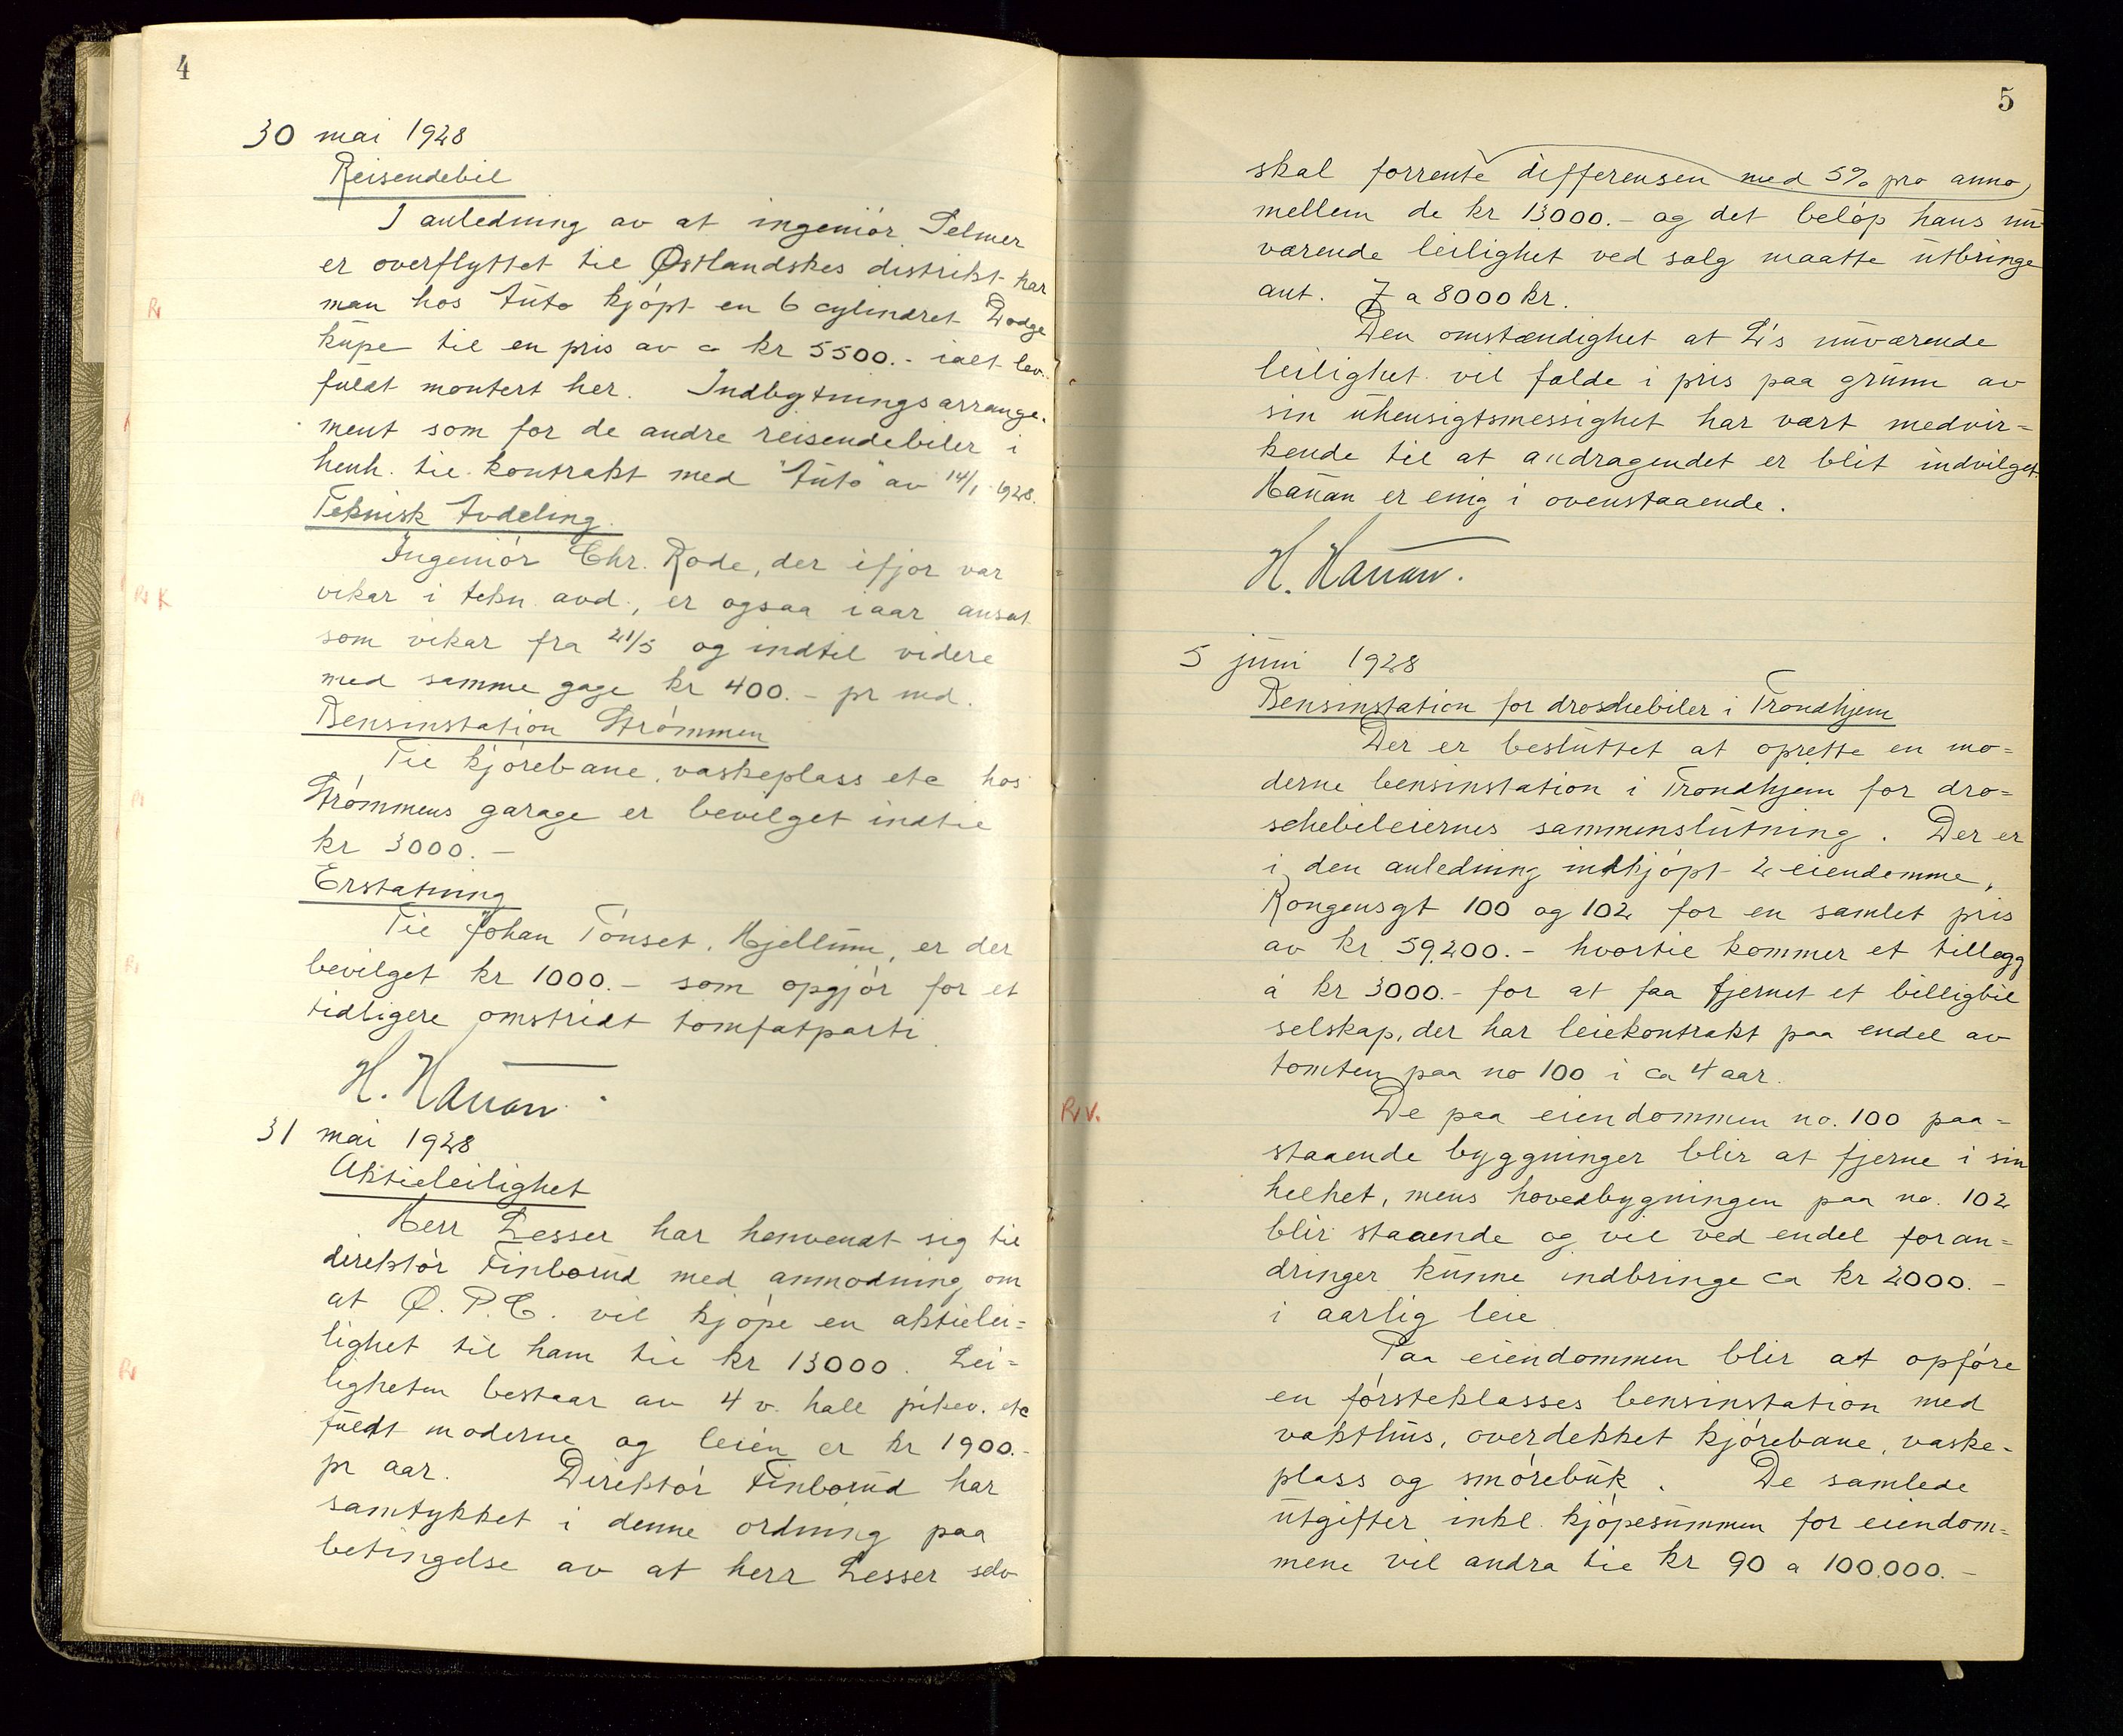 4
30 mai 1928
Reisendebil
I anledning av at ingeniør Selmer
er overflyttet til Østlandskes distrikt har
man hos Auto kjøpt en 6 cylindret Dodge
kupe til en pris av ca kr 5500.- ialt lev.
fuldt montert her. Indbytningsarrange-
ment som for de andre reisendebiler i
henh. til kontrakt med "Auto" av 14/1 1928.
Teknisk Avdeling.
Ingeniør Chr. Rode, der ifjor var
vikar i tekn. avd., er ogsaa iaar ansat
som vikar fra 21/5 og indtil videre
med samme gage kr 400.- pr md.
Bensinstation Strømmen
Til kjørebane, vaskeplass etc hos
Strømmens garage er bevilget indtil
kr 3000.-
Erstatning
Til Johan Tønset, Hjellum, er der
bevilget kr 1000.- som opgjør for et
tidligere omstridt tomfatparti.
H. Hauan.
31 mai 1928
Aktieleilighet
Herr Lesser har henvendt sig til
direktør Finborud med anmodning om
at Ø. P. C. vil kjøpe en aktielei=
lighet til ham til kr 13000. Lei=
ligheten bestaar av 4 v. hall pikev. etc
fuldt moderne og leien er kr 1900.-
pr aar. Direktør Finborud har
samtykket i denne ordning paa
betingelse av at herr Lesser selv
5
skal forrente differensen med 5% pro anno,
mellem de kr 13000.- og det beløp hans nu-
værende leilighet ved salg maatte utbringe
ant. 7 a 8000 kr.
Den omstændighet at L's nuværende
leilighet vil falde i pris paa grunn av
sin uhensigtsmessighet har vært medvir=
kende til at andragendet er blit indvilget.
Hauan er enig i ovenstaaende.
H. Hauan.
5 juni 1928
Bensinstation for droschebiler i Trondhjem
Der er besluttet at oprette en mo=
derne bensinstation i Trondhjem for dro=
schebileiernes sammenslutning. Der er
i den anledning indkjøpt 2 eiendomme,
Kongensgt 100 og 102 for en samlet pris
av kr 59.200.- hvortil kommer et tillegg
á kr 3000.- for at faa fjernet et billigbil
selskap, der har leiekontrakt paa endel av
tomten paa no 100 i ca 4 aar.
De paa eiendommen no. 100 paa=
staaende byggninger blir at fjerne i sin
helhet, mens hovedbygningen paa no. 102
blir staaende og vil ved endel foran=
dringer kunne indbringe ca kr 2000.-
i aarlig leie
Paa eiendommen blir at opføre
en førsteklasses bensinstation med
vakthus, overdekket kjørebane, vaske-
plass og smørebuk. De samlede
utgifter inkl. kjøpesummen for eiendom=
mene vil andra til kr 90 a 100.000.-